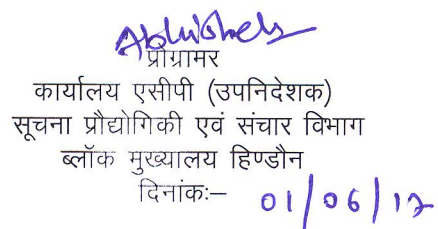 Abhishek
प्रोग्रामर
कार्यालय एसीपी (उपनिदेशक)
सूचना प्रौद्योगिकी एवं संचार विभाग
ब्लॉक मुख्यालय हिण्डौन
दिनांकः– 01/06/17